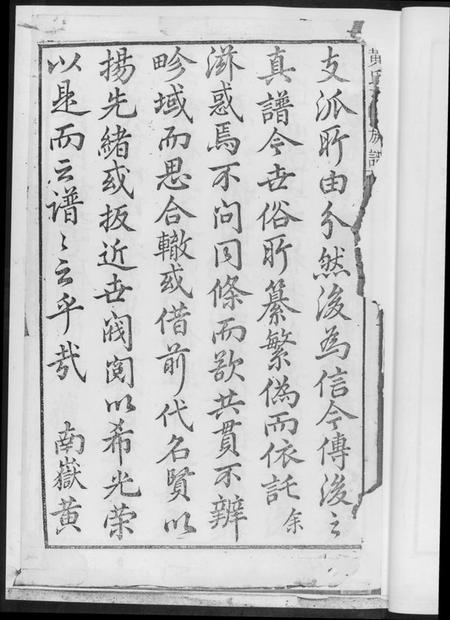 黄氏族譜
支派所由分然後為信今傳後之
真譜今世俗所纂繁偽而依託余
滋惑焉不問同條而欲共貫不辨
畛域而思合轍或借前代名賢以
揚先緒或扳近世閥閱以希光荣
以是而云谱〻云乎哉　南嶽黄